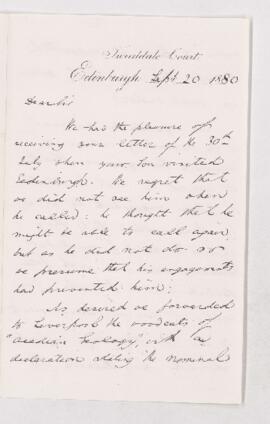 Tweeddale Court,
Edinburgh Sept 20 1880
Dear Sir
We had the pleasure of
receiving your letter of the 30th
July when your son visited
Edinburgh. We regret that
we did not see him when
he called: he thought that he
might be able to call again
but as he did not do so
we presume that his engagements
had prevented him.
As desired we forwarded
to Liverpool the woodcuts of
"Acadian Geology", with a
declaration stating the nominal